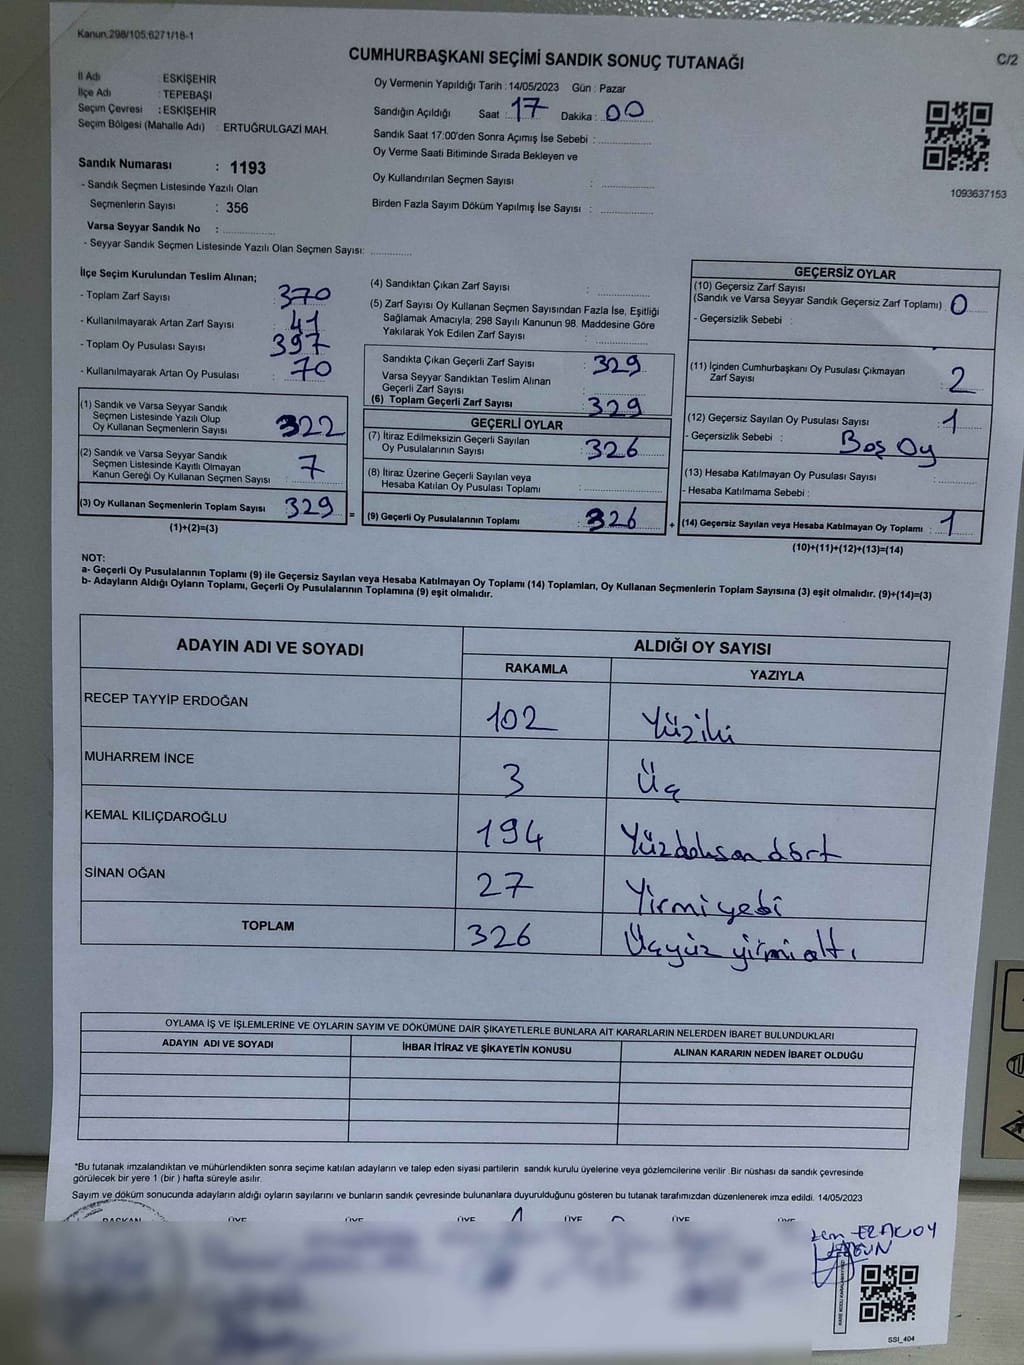 Kanun.298/105,6271/18-1
CUMHURBAŞKANI SEÇİMİ SANDIK SONUÇ TUTANAĞI
C/2
İl Adı : ESKİŞEHİR
İlçe Adı : TEPEBAŞI
Seçim Çevresi : ESKİŞEHİR
Seçim Bölgesi (Mahalle Adı) : ERTUĞRULGAZİ MAH.
Sandık Numarası : 1193
- Sandık Seçmen Listesinde Yazılı Olan
Seçmenlerin Sayısı : 356
Varsa Seyyar Sandık No :
- Seyyar Sandık Seçmen Listesinde Yazılı Olan Seçmen Sayısı:
Oy Vermenin Yapıldığı Tarih : 14/05/2023 Gün : Pazar
Sandığın Açıldığı Saat : 17 Dakika : 00
Sandık Saat 17:00'den Sonra Açımış İse Sebebi :
Oy Verme Saati Bitiminde Sırada Bekleyen ve
Oy Kullandırılan Seçmen Sayısı :
Birden Fazla Sayım Döküm Yapılmış İse Sayısı :
1093637153
İlçe Seçim Kurulundan Teslim Alınan;
- Toplam Zarf Sayısı : 370
- Kullanılmayarak Artan Zarf Sayısı : 41
- Toplam Oy Pusulası Sayısı : 397
- Kullanılmayarak Artan Oy Pusulası : 70
(1) Sandık ve Varsa Seyyar Sandık
Seçmen Listesinde Yazılı Olup
Oy Kullanan Seçmenlerin Sayısı : 322
(2) Sandık ve Varsa Seyyar Sandık
Seçmen Listesinde Kayıtlı Olmayan
Kanun Gereği Oy Kullanan Seçmen Sayısı : 7
(3) Oy Kullanan Seçmenlerin Toplam Sayısı : 329
(1)+(2)=(3)
=
(4) Sandıktan Çıkan Zarf Sayısı :
(5) Zarf Sayısı Oy Kullanan Seçmen Sayısından Fazla İse, Eşitliği
Sağlamak Amacıyla; 298 Sayılı Kanunun 98. Maddesine Göre
Yakılarak Yok Edilen Zarf Sayısı :
Sandıkta Çıkan Geçerli Zarf Sayısı : 329
Varsa Seyyar Sandıktan Teslim Alınan
Geçerli Zarf Sayısı :
(6) Toplam Geçerli Zarf Sayısı : 329
GEÇERLİ OYLAR
(7) İtiraz Edilmeksizin Geçerli Sayılan
Oy Pusulalarının Sayısı : 326
(8) İtiraz Üzerine Geçerli Sayılan veya
Hesaba Katılan Oy Pusulası Toplamı :
(9) Geçerli Oy Pusulalarının Toplamı : 326
+
GEÇERSİZ OYLAR
(10) Geçersiz Zarf Sayısı
(Sandık ve Varsa Seyyar Sandık Geçersiz Zarf Toplamı) : 0
- Geçersizlik Sebebi :
(11) İçinden Cumhurbaşkanı Oy Pusulası Çıkmayan
Zarf Sayısı : 2
(12) Geçersiz Sayılan Oy Pusulası Sayısı : 1
- Geçersizlik Sebebi : Boş Oy
(13) Hesaba Katılmayan Oy Pusulası Sayısı :
- Hesaba Katılmama Sebebi :
(14) Geçersiz Sayılan veya Hesaba Katılmayan Oy Toplamı : 1
(10)+(11)+(12)+(13)=(14)
NOT:
a- Geçerli Oy Pusulalarının Toplamı (9) ile Geçersiz Sayılan veya Hesaba Katılmayan Oy Toplamı (14) Toplamları, Oy Kullanan Seçmenlerin Toplam Sayısına (3) eşit olmalıdır. (9)+(14)=(3)
b- Adayların Aldığı Oyların Toplamı, Geçerli Oy Pusulalarının Toplamına (9) eşit olmalıdır.
ADAYIN ADI VE SOYADI
ALDIĞI OY SAYISI
RAKAMLA YAZIYLA
RECEP TAYYİP ERDOĞAN 102 Yüziki
MUHARREM İNCE 3 Üç
KEMAL KILIÇDAROĞLU 194 Yüzdoksan dört
SİNAN OĞAN 27 Yirmiyedi
TOPLAM 326 Üçyüz yirmialtı
OYLAMA İŞ VE İŞLEMLERİNE VE OYLARIN SAYIM VE DÖKÜMÜNE DAİR ŞİKAYETLERLE BUNLARA AİT KARARLARIN NELERDEN İBARET BULUNDUKLARI
ADAYIN ADI VE SOYADI İHBAR İTİRAZ VE ŞİKAYETİN KONUSU ALINAN KARARIN NEDEN İBARET OLDUĞU
*Bu tutanak imzalandıktan ve mühürlendikten sonra seçime katılan adayların ve talep eden siyasi partilerin sandık kurulu üyelerine veya gözlemcilerine verilir .Bir nüshası da sandık çevresinde
görülecek bir yere 1 (bir ) hafta süreyle asılır.
Sayım ve döküm sonucunda adayların aldığı oyların sayılarını ve bunların sandık çevresinde bulunanlara duyurulduğunu gösteren bu tutanak tarafımızdan düzenlenerek imza edildi. 14/05/2023
BAŞKAN ÜYE ÜYE ÜYE ÜYE ÜYE ÜYE
SSİ_404